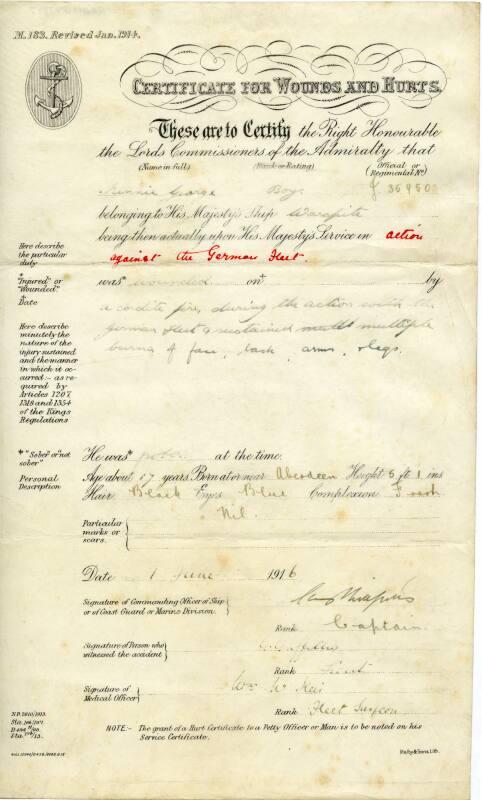 M. 183. Revised Jan. 1914.
CERTIFICATE FOR WOUNDS AND HURTS.
These are to Certify the Right Honourable
the Lords Commissioners of the Admiralty that
(Name in full) (Rank or Rating) (Official or Regimental No)
George Boy J
belonging to His Majesty's Ship Warspite
being then actually upon His Majesty's Service in action
Here describe the particular duty
against the German Fleet.
* "Injured" or "Wounded."
was* wounded on† by
† Date
a cordite fire, during the action with the
Here describe minutely the nature of the injury sustained and the manner in which it occurred:- as required by Articles 1207, 1318 and 1354 of the Kings Regulations
German Fleet & sustained multiple
burns of face, back, arms, & legs.
* "Sober or not sober"
He was* sober at the time.
Personal Description
Age about 17 years Born at or near Aberdeen Height 5 ft 1 ins
Hair Black Eyes Blue Complexion Fresh
Particular marks or scars. Nil.
Date 1 June 1916
Signature of Commanding Officer of Ship or of Coast Guard or Marine Division.
Rank Captain.
Signature of Person who witnessed the accident
Rank
Signature of Medical Officer
Wm W Keir
Rank Fleet Surgeon
NOTE:- The grant of a Hurt Certificate to a Petty Officer or Man is to be noted on his Service Certificate.